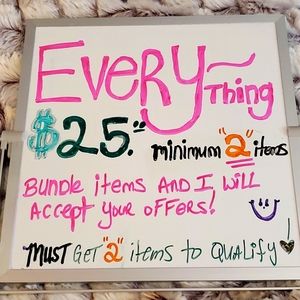 EVERY~
Thing
$25.== minimum "2" items
BUNDLE items AND I WILL
ACCEPT YOUR OFFERS!
MUST GET "2" items to QUALIFY!